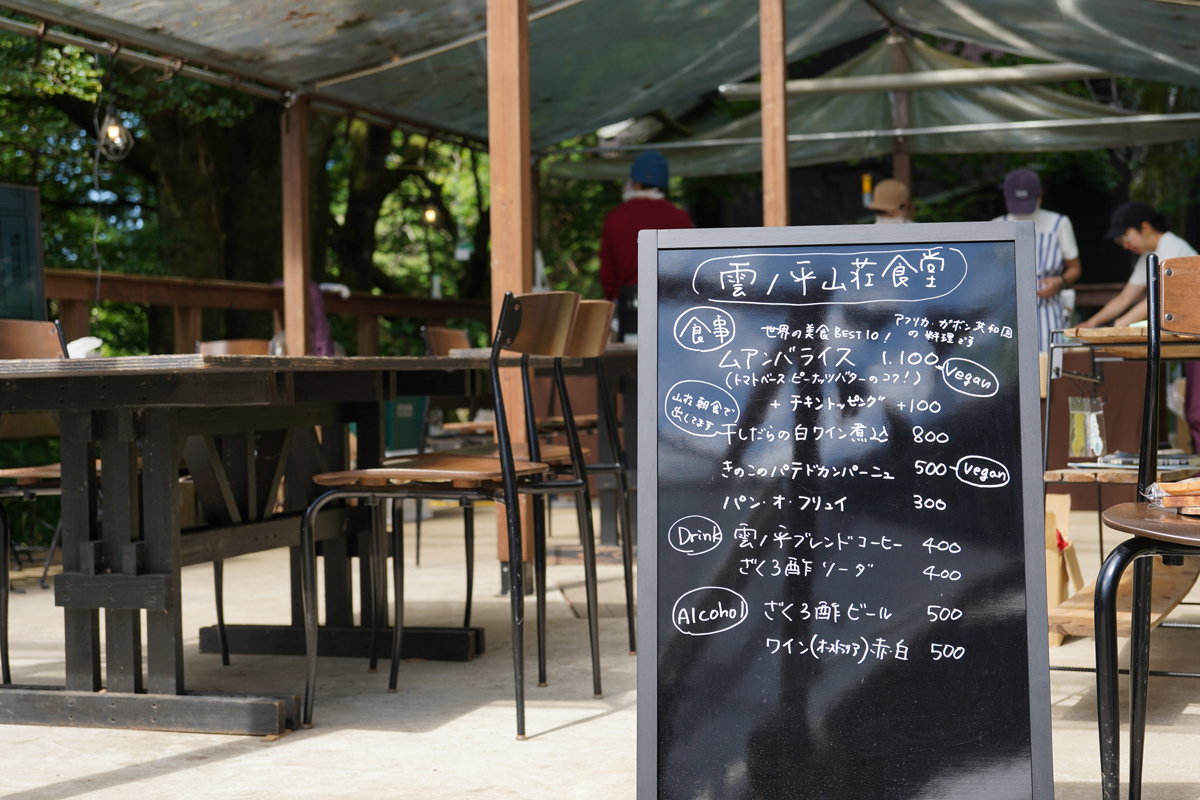 雲ノ平山荘食堂
食事
世界の美食BEST10!
アフリカ・ガボン共和国
の料理です
ムアンバライス 1.100 Vegan
(トマトベース・ピーナッツバターのコク!)
山荘朝食で
出してます
+ チキントッピング +100
干しだらの白ワイン煮込 800
きのこのパテドカンパーニュ 500 Vegan
パン・オ・フリュイ 300
Drink 雲ノ平ブレンドコーヒー 400
ざくろ酢ソーダ 400
Alcohol ざくろ酢ビール 500
ワイン(オーストラリア)赤・白 500